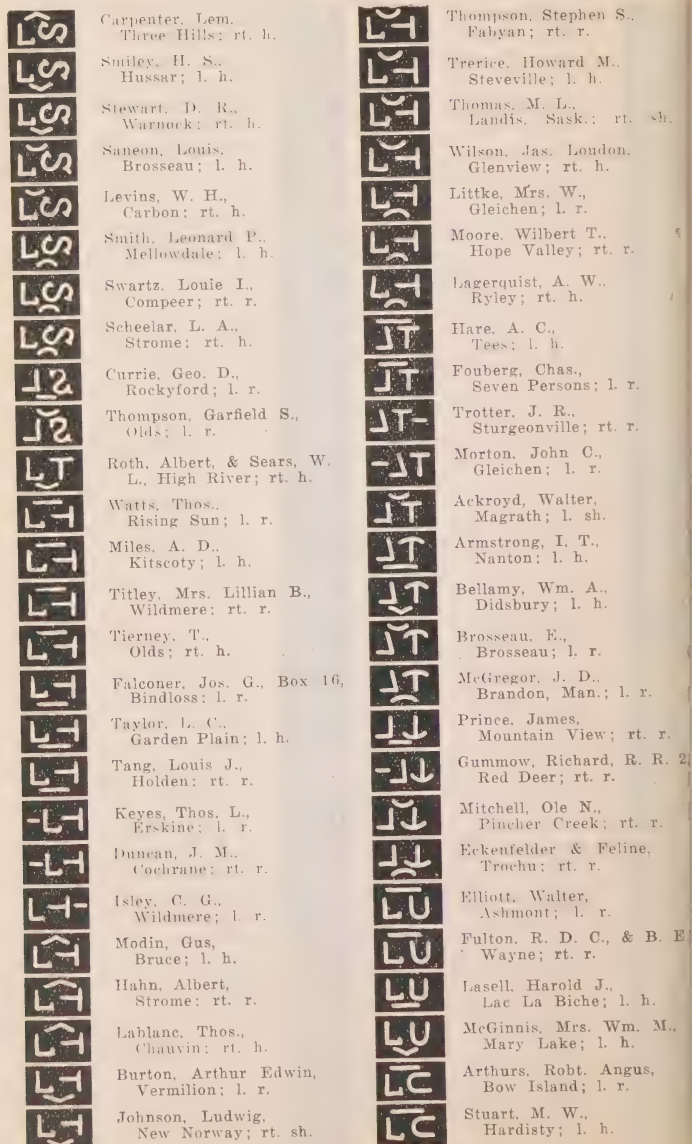 Carpenter, Lem.
Three Hills; rt. h.
Smiley, H. S.,
Hussar; l. h.
Stewart, D. R.,
Warnock; rt. h.
Saneon, Louis,
Brosseau; l. h.
Levins, W. H.,
Carbon; rt. h.
Smith, Leonard P.,
Mellowdale; l. h.
Swartz, Louie I.,
Compeer; rt. r.
Scheelar, L. A.,
Strome; rt. h.
Currie, Geo. D.,
Rockyford; l. r.
Thompson, Garfield S.,
Olds; l. r.
Roth, Albert, & Sears, W.
L., High River; rt. h.
Watts, Thos.,
Rising Sun; l. r.
Miles, A. D.,
Kitscoty; l. h.
Titley, Mrs. Lillian B.,
Wildmere; rt. r.
Tierney, T.,
Olds; rt. h.
Falconer, Jos. G., Box 16,
Bindloss; l. r.
Taylor, L. C.,
Garden Plain; l. h.
Tang, Louis J.,
Holden; rt. r.
Keyes, Thos. L.,
Erskine; l. r.
Duncan, J. M.,
Cochrane; rt. r.
Isley, C. G.,
Wildmere; l. r.
Modin, Gus,
Bruce; l. h.
Hahn, Albert,
Strome; rt. r.
Lablanc, Thos.,
Chauvin; rt. h.
Burton, Arthur Edwin,
Vermilion; l. r.
Johnson, Ludwig,
New Norway; rt. sh.
Thompson, Stephen S.,
Fabyan; rt. r.
Trerice, Howard M.,
Steveville; l. h.
Thomas, M. L.,
Landis, Sask.; rt. sh.
Wilson, Jas. London,
Glenview; rt. h.
Littke, Mrs. W.,
Gleichen; l. r.
Moore, Wilbert T.,
Hope Valley; rt. r.
Lagerquist, A. W.,
Ryley; rt. h.
Hare, A. C.,
Tees; l. h.
Fouberg, Chas.,
Seven Persons; l. r.
Trotter, J. R.,
Sturgeonville; rt. r.
Morton, John C.,
Gleichen; l. r.
Ackroyd, Walter,
Magrath; l. sh.
Armstrong, I. T.,
Nanton; l. h.
Bellamy, Wm. A.,
Didsbury; l. h.
Brosseau, E.,
Brosseau; l. r.
McGregor, J. D.,
Brandon, Man.; l. r.
Prince, James,
Mountain View; rt. r.
Gummow, Richard, R. R. 2,
Red Deer; rt. r.
Mitchell, Ole N.,
Pincher Creek; rt. r.
Eckenfelder & Feline,
Trochu; rt. r.
Elliott, Walter,
Ashmont; l. r.
Fulton, R. D. C., & B. E
Wayne; rt. r.
Lasell, Harold J.,
Lac La Biche; l. h.
McGinnis, Mrs. Wm. M.,
Mary Lake; l. h.
Arthurs, Robt. Angus,
Bow Island; l. r.
Stuart, M. W.,
Hardisty; l. h.